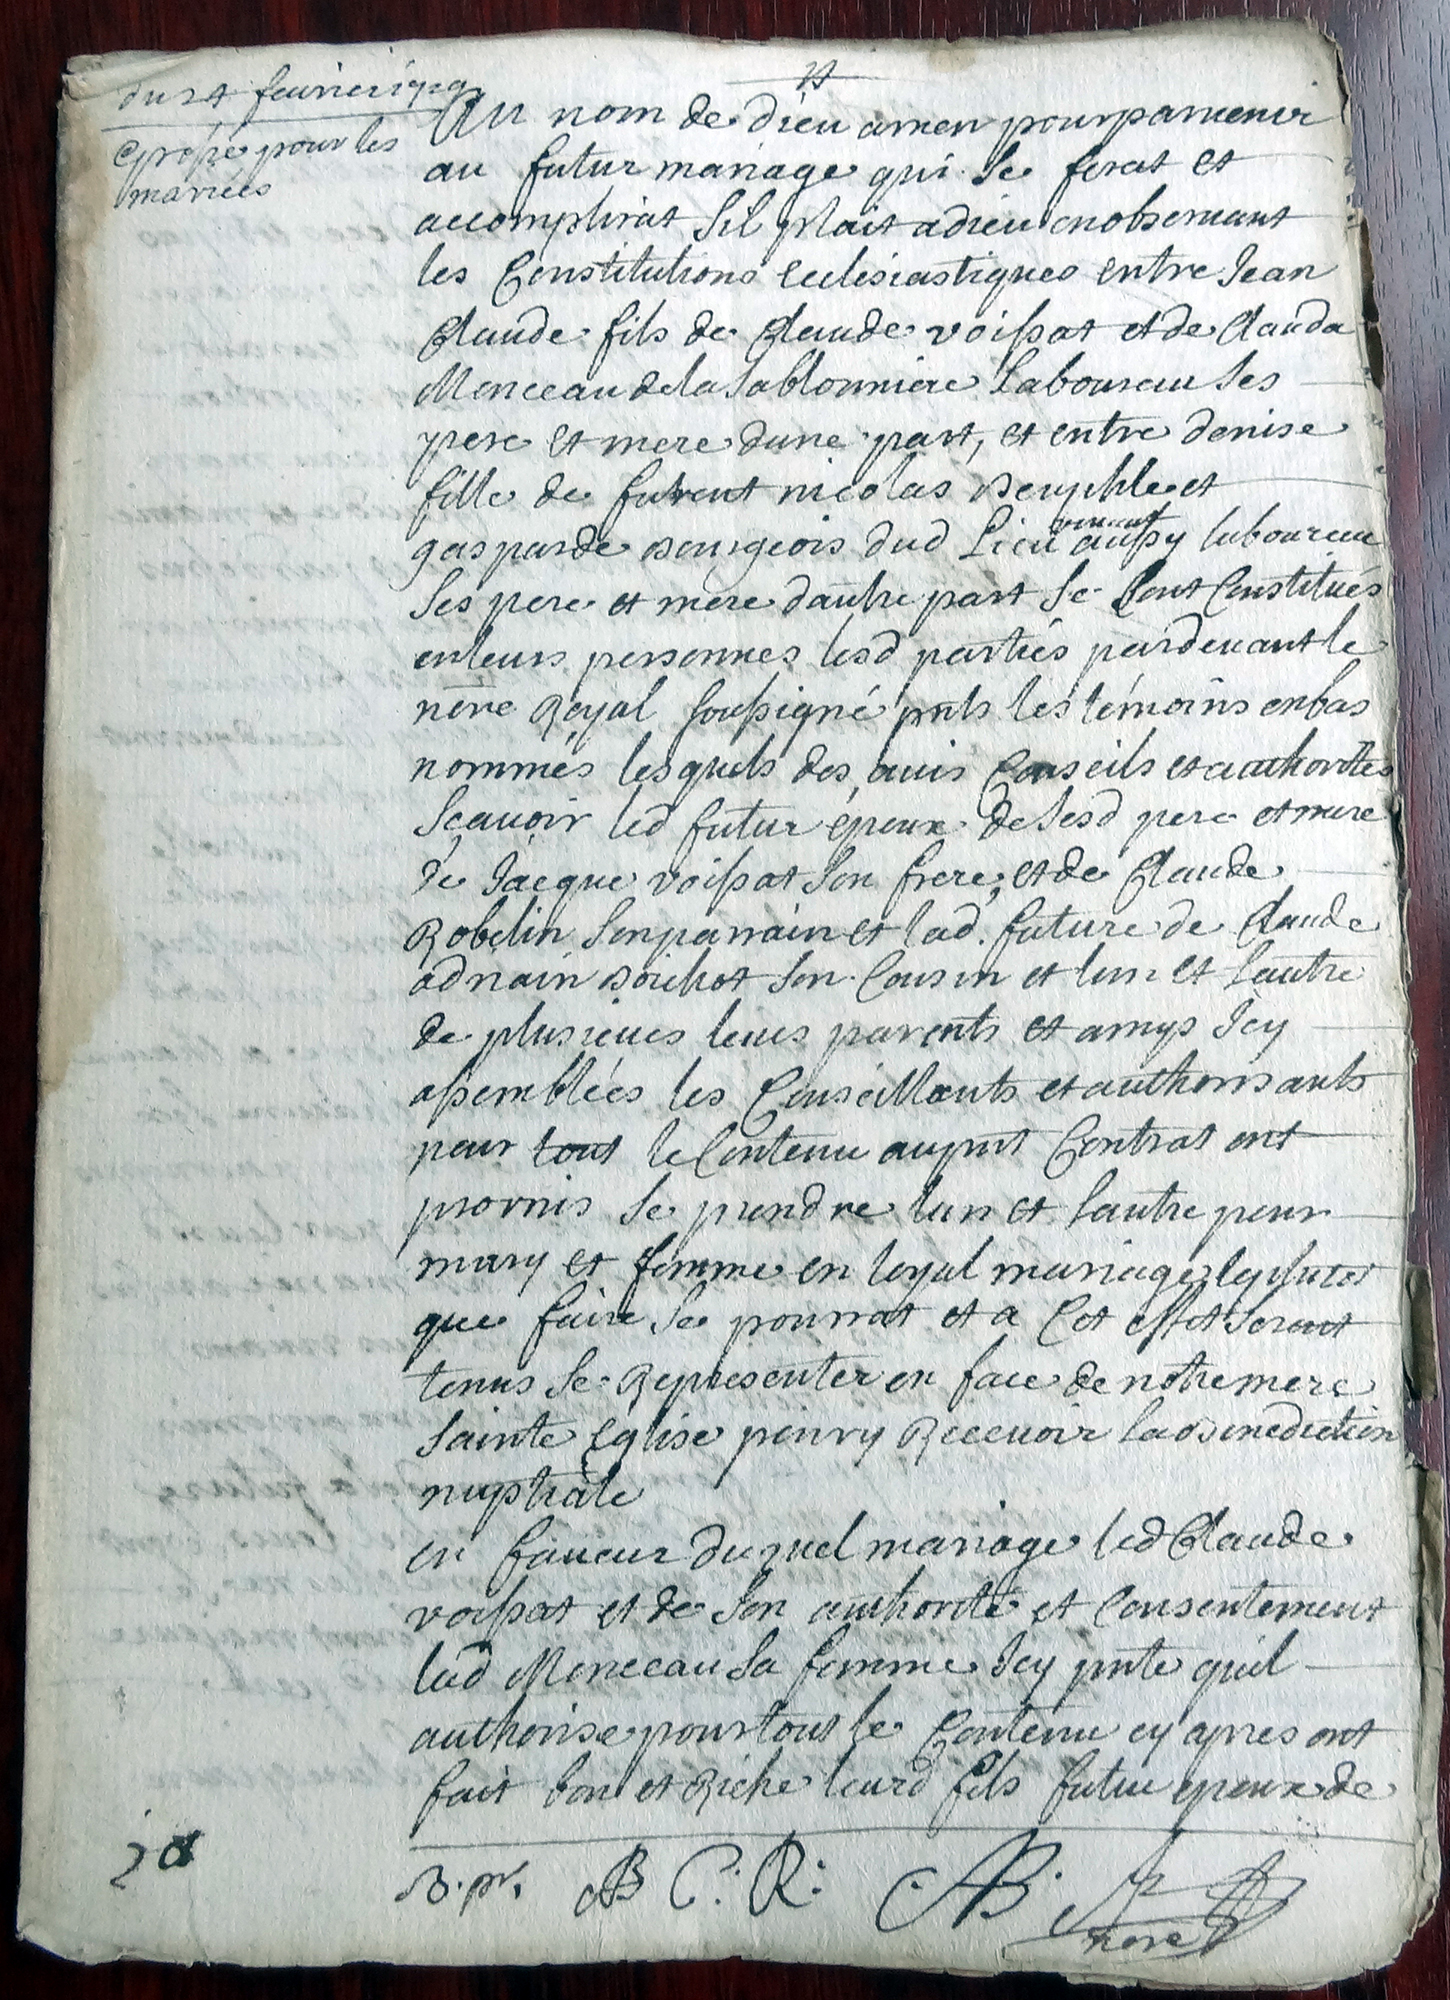 du 24 feuvrier 1729
Au nom de dieu amen pour parvenir
grosse pour les
mariées
au futur mariage qui se ferat et
accomplirat sil plait a dieu en observant
les Constitutions Ecclésiastiques entre Jean
Claude fils de Claude voissat et de Clauda
Monceau de la Sablonniere Laboureur ses
pere et mere dune part, et entre denise
fille de furent nicolas et
gasparde Bourgeois dud Lieu vivant aussy laboureur
ses pere et mere dautre part se sont Constitués
en leurs personnes lesd parties pardevant le
nore Royal soussigné pnts les témoins en bas
nommés lesquels des avis Conseils et authorites
Scavoir led futur époux de sesd pere et mere
de Jacque voissat son frere, et de Claude
Robelin son parrain et lad. future de Claude
adriain son Cousin et lun et lautre
de plusieurs leurs parents et amys Icy
assemblées les Conseillants et authorisants
pour tout le Contenu au pnt Contrat ont
promis se prendre lun et lautre pour
mary et femme en loyal mariage le plutot
que faire se pourrat et a Cet effet seront
tenus se Representer en face de notre mere
Sainte Eglise pour y Recevoir la Benediction
nuptiale
en faveur duquel mariage led Claude
voissat et de son authorité et Consentement
lad Monceau sa femme Icy pnte quil
authorise pour tout le Contenu cy apres ont
fait bon et Riche leurd fils futur epoux de
B. pr. AB C. R. C. AB.
nore